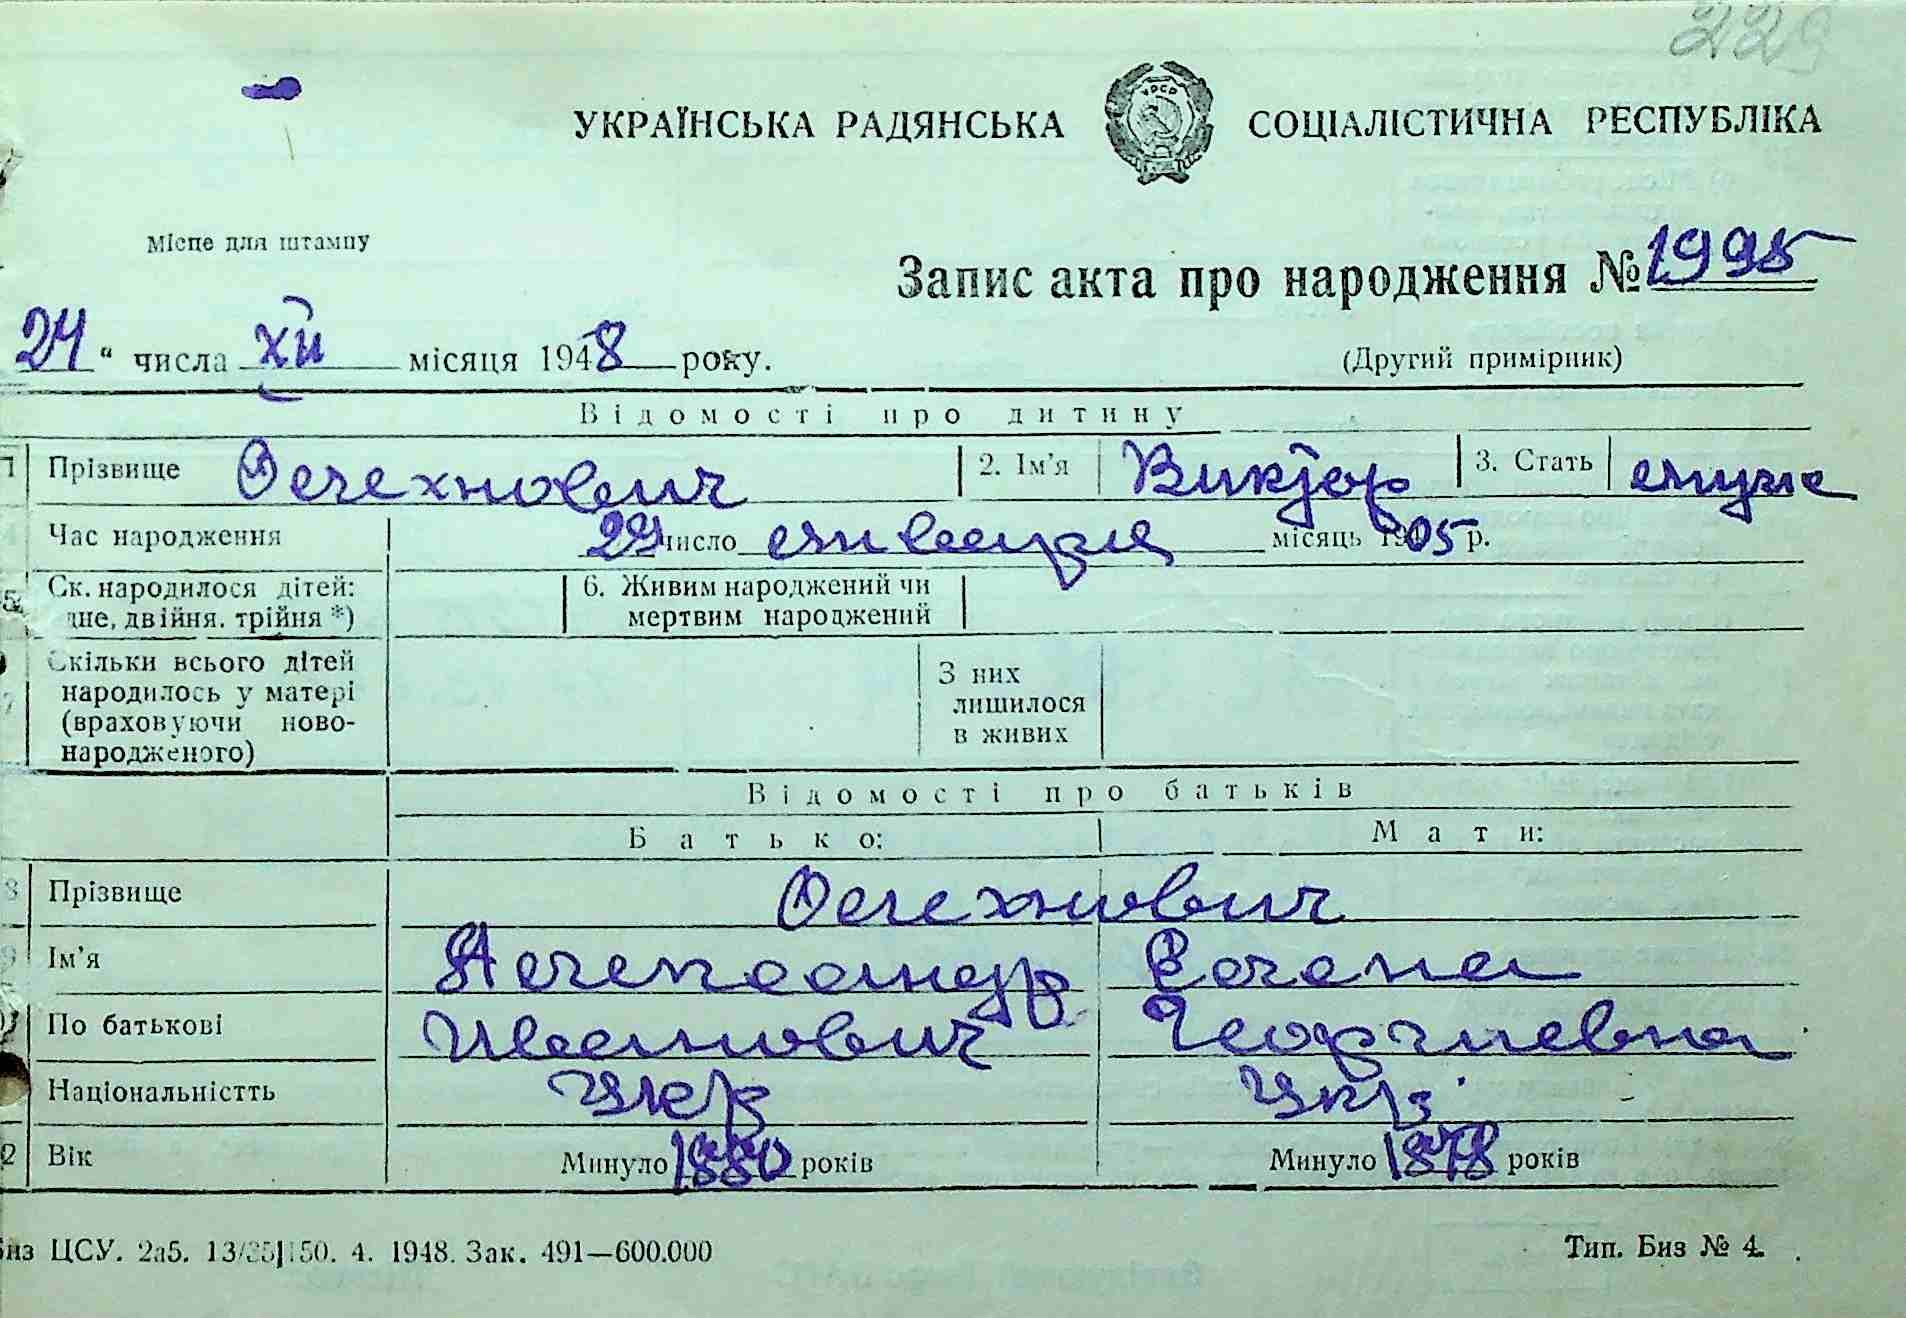 229
УРСР
УКРАЇНСЬКА РАДЯНСЬКА СОЦІАЛІСТИЧНА РЕСПУБЛІКА
Місце для штампу
Запис акта про народження № 1995
24 " числа XII місяця 1948 року.
(Другий примірник)
Відомості про дитину
1 Прізвище Олехнович 2. Ім'я Виктор 3. Стать муж
4 Час народження 29 число января місяць 1905 р.
5 Ск. народилося дітей: 6. Живим народжений чи
дне, двійня, трійня *) мертвим народжений
7 Скільки всього дітей
народилось у матері
(враховуючи ново-
народженого)
З них
лишилося
в живих
Відомості про батьків
Батько: Мати:
8 Прізвище Олехнович
9 Ім'я Александр Елена
По батькові Иванович Георгиевна
Національністть Укр Укр.
2 Вік Минуло 1880 років Минуло 1878 років
Биз ЦСУ. 2а5. 13/35|150. 4. 1948. Зак. 491—600.000 Тип. Биз № 4.